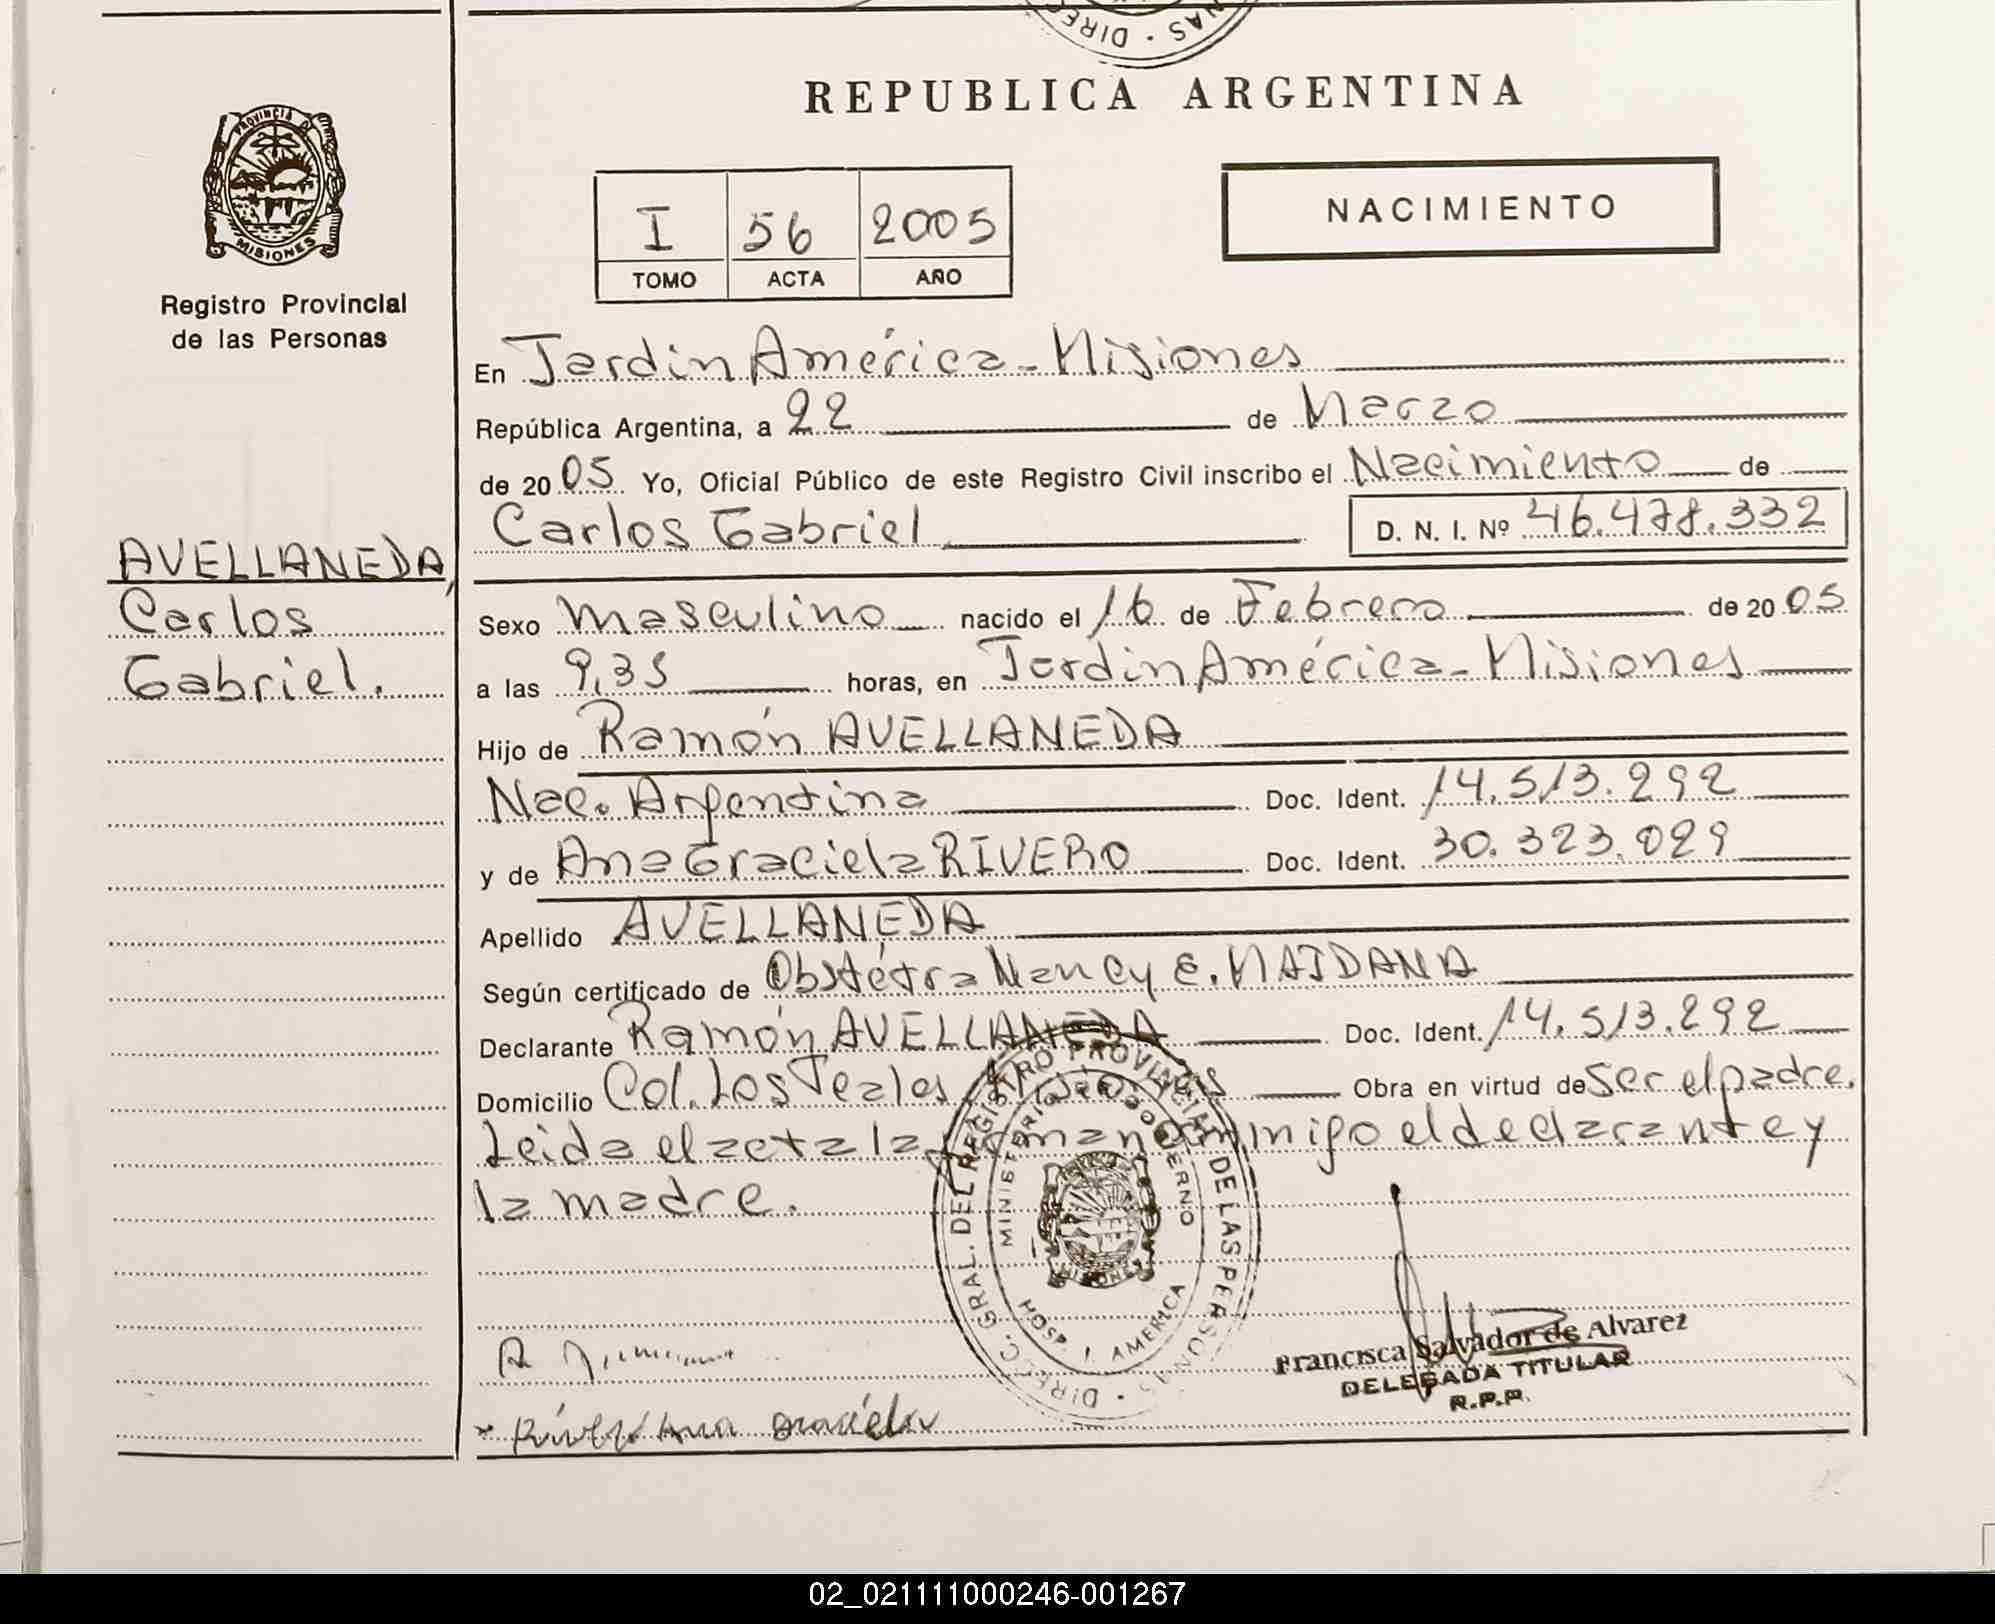 DIREC NAS
REPUBLICA ARGENTINA
PROVINCIA DE
MISIONES
Registro Provincial
de las Personas
I 56 2005
TOMO ACTA AÑO
NACIMIENTO
En Jardin América - Misiones
República Argentina, a 22 de Marzo
de 2005 Yo, Oficial Público de este Registro Civil inscribo el Nacimiento de
Carlos Gabriel D. N. I. Nº 46.478.332
AVELLANEDA,
Carlos
Gabriel.
Sexo masculino nacido el 16 de Febrero de 2005
a las 9,35 horas, en Jardin América - Misiones
Hijo de Ramón AVELLANEDA
Nac. Argentina Doc. Ident. 14.513.292
y de Ana Graciela RIVERO Doc. Ident. 30.323.029
Apellido AVELLANEDA
Según certificado de Obstétra Nancy E. MAIDANA
Declarante Ramón AVELLANEDA Doc. Ident. 14.513.292
Domicilio Col. Los Teales Obra en virtud de Ser el padre.
Leida el acta la firman conmigo el declarante y
la madre.
DIREC. GRAL. DEL REGISTRO PROVINCIAL DE LAS PERSONAS
MINISTERIO DE GOBIERNO
MISIONES
HOSP. J. AMERICA
Francisca Salvador de Alvarez
DELEGADA TITULAR
R.P.P.
Rivero Ana Graciela
02_021111000246-001267